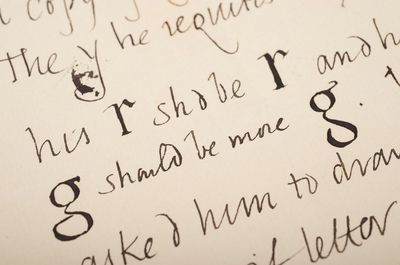 copy
the g he requires
his r shd be r and h
g should be more g.
asked him to draw
if letter